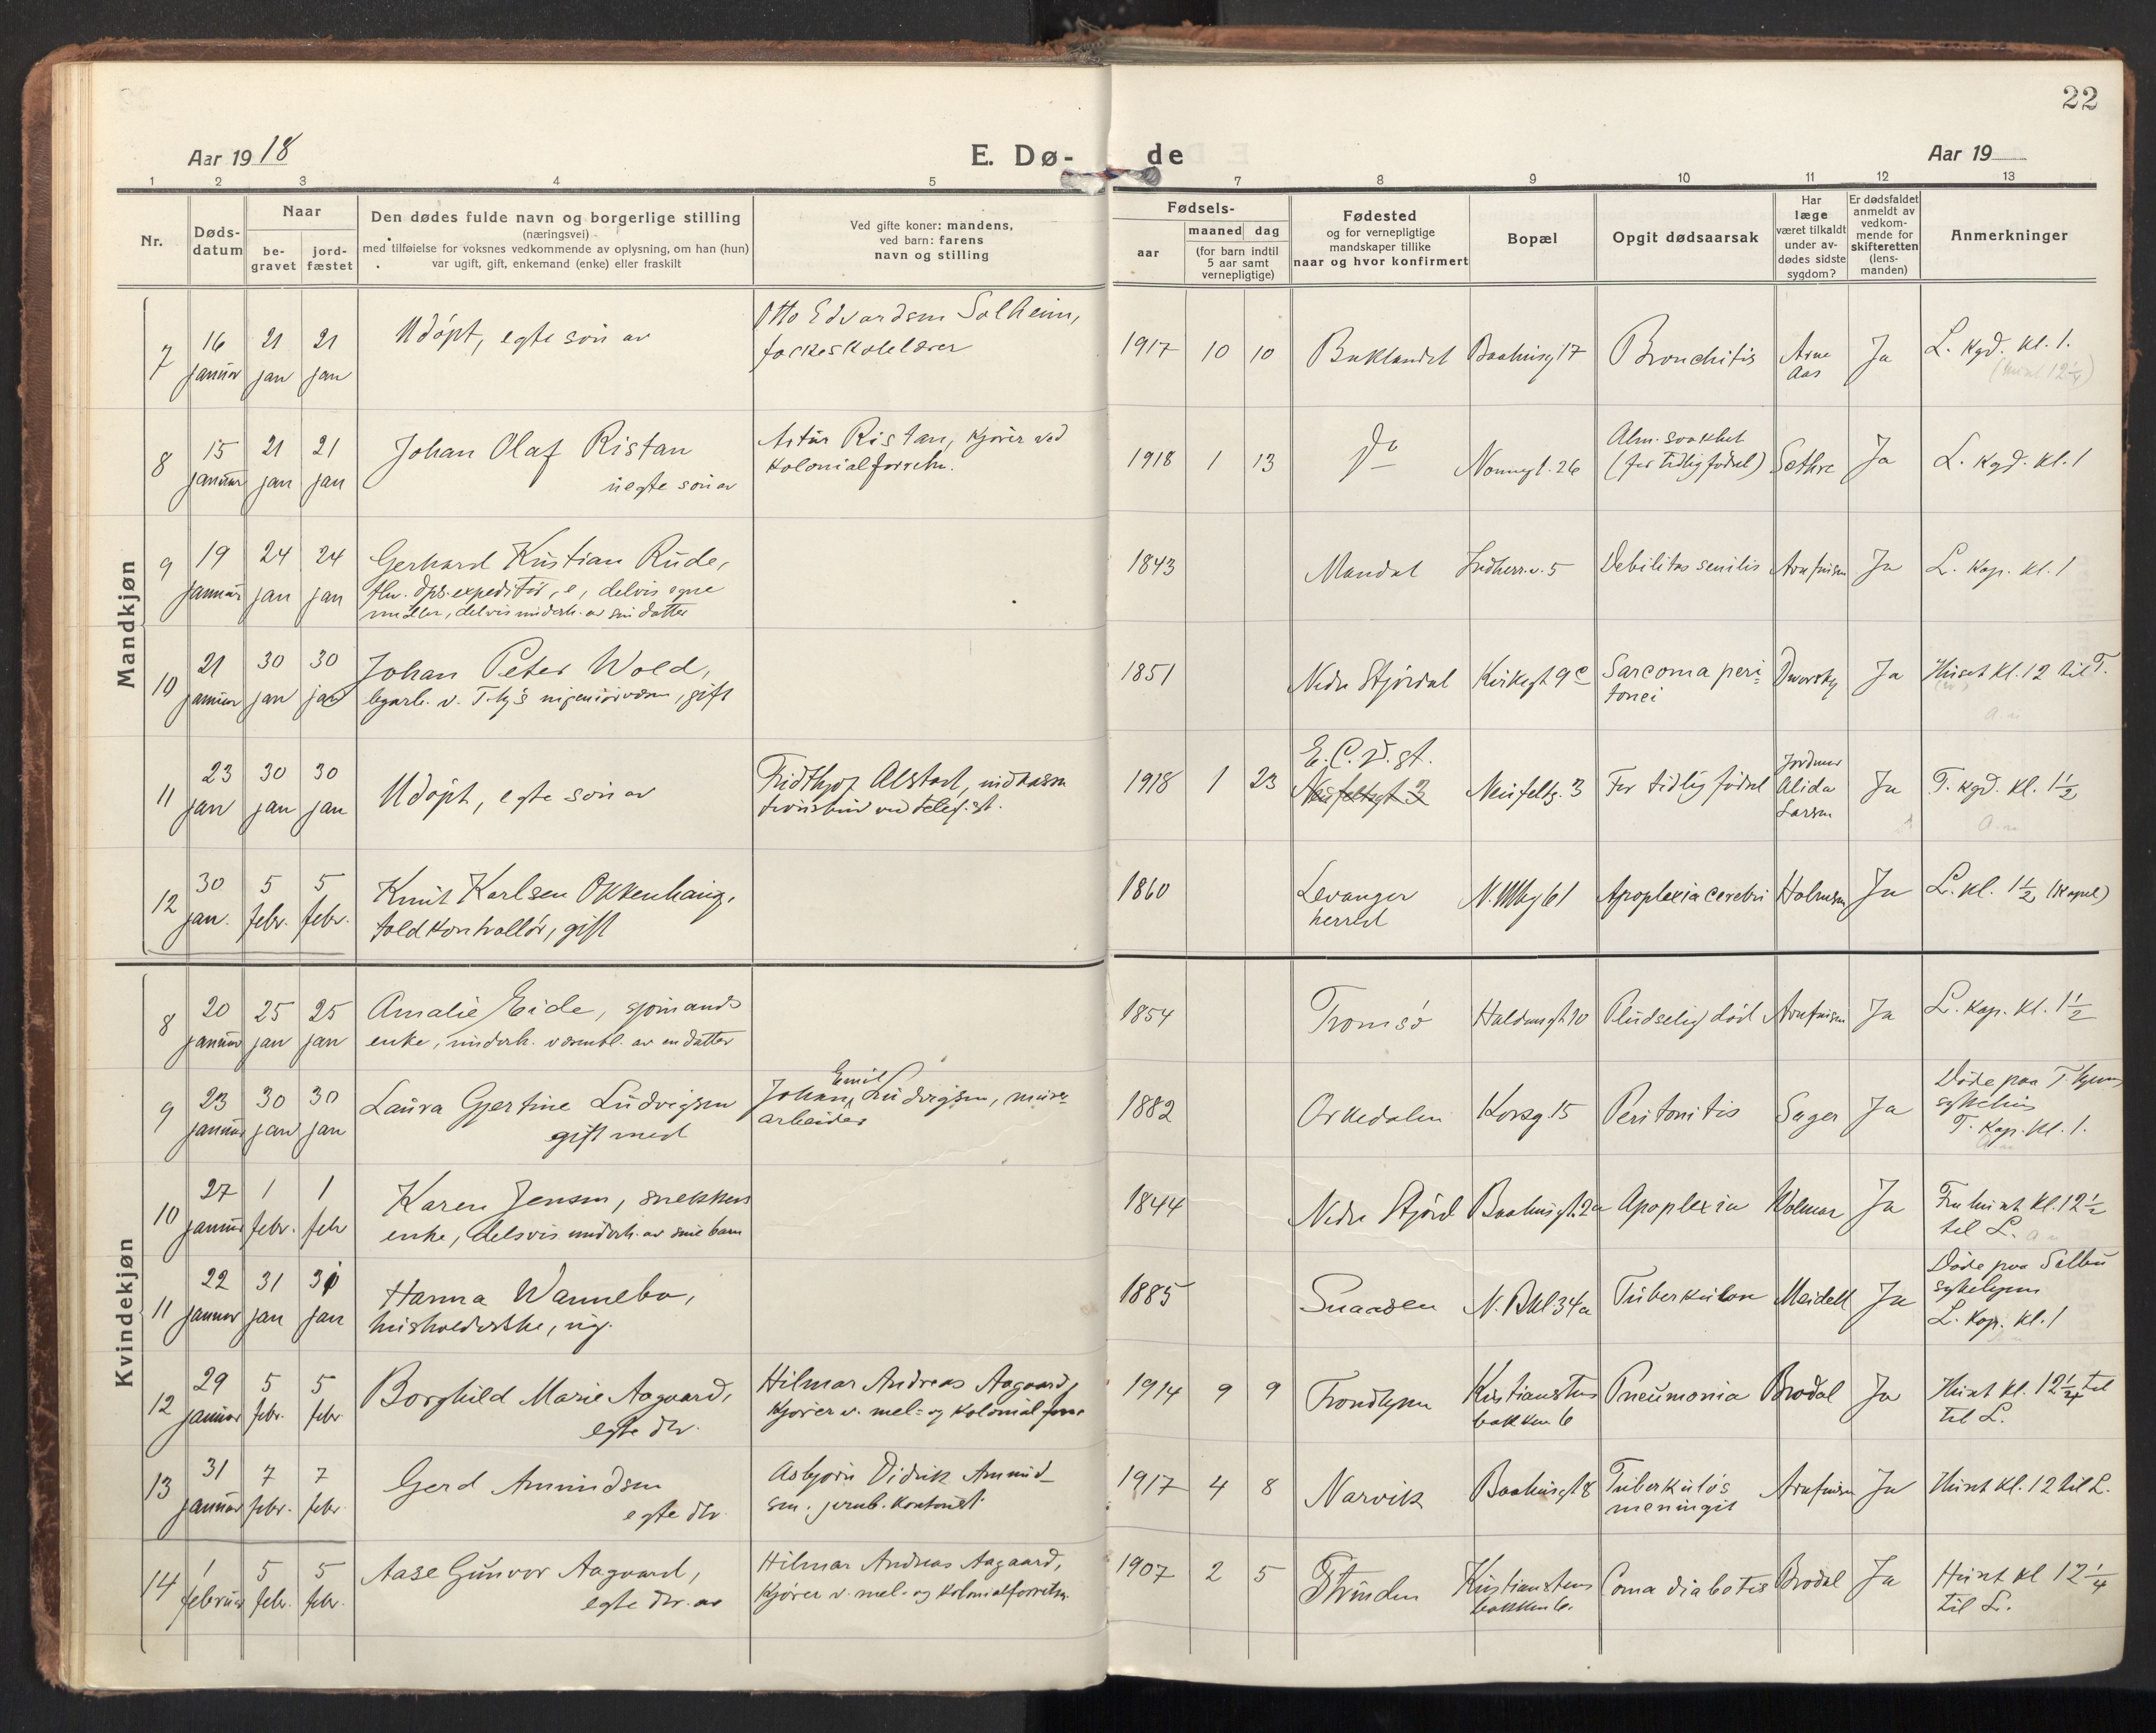 22
Aar 19 18
E. Dø-
de
Aar 19
1 2 3 4 5 7 8 9 10 11 12 13
Nr.
Døds-
datum
Naar
be-
gravet
jord-
fæstet
Den dødes fulde navn og borgerlige stilling
(næringsvei)
med tilføielse for voksnes vedkommende av oplysning, om han (hun)
var ugift, gift, enkemand (enke) eller fraskilt
Ved gifte koner: mandens,
ved barn: farens
navn og stilling
Fødsels-
aar
maaned dag
(for barn indtil
5 aar samt
vernepligtige)
Fødested
og for vernepligtige
mandskaper tillike
naar og hvor konfirmert
Bopæl
Opgit dødsaarsak
Har
læge
været tilkaldt
under av-
dødes sidste
sygdom?
Er dødsfaldet
anmeldt av
vedkom-
mende for
skifteretten
(lens-
manden)
Anmerkninger
Mandkjøn
7 16 januar 21 jan 21 jan
Udøpt, egte søn av
Otto Edvardsen Solheim,
1917 10 10 Baklandet Baahusg 17 Bronchitis Arne Aas Ja L. kgd. kl. 1.
8 15 januar 21 jan 21 jan
Johan Olaf Ristan
uegte søn av
Artur Ristan, kjører ved
kolonialforretn.
1918 1 13 Do Nonnegt. 26 Alm. svakhet
(for tidlig født) Sethre Ja L. kgd. kl. 1
9 19 januar 24 jan 24 jan
Gerhard Kristian Rude,
fhv. dps. expeditør, e, delvis egne
midler, delvis underh. av sin datter
1843 Mandal Indherr.v. 5 Debilitas senilis Arnfinsen Ja L. kap. kl. 1
10 21 januar 30 jan 30 jan
Johan Peter Wold,
byarb. v. T.hj's ingeniørvæsen, gift
1851 Nedre Stjørdal Kirkegt 9c Sarcoma peri=
tonei Dworsky Ja Huset kl. 12 til T.
11 23 jan 30 jan 30 jan
Udøpt, egte søn av
Fridthjof Alstad, inkassa
ved telegf. st.
1918 1 23 E. C. D. st.
Neufeldtgt 3 Neufeltg. 3 For tidlig født Jordmor
Alida
Larsen Ja T. kgd. kl. 1½
12 30 jan. 5 febr. 5 febr.
Knut Karlsen Okkenhaug,
toldkontrollør, gift
1860 Levanger
herred 61 Apoplexia cerebri Holmsen Ja L. kl. 1½ (kapel)
Kvindekjøn
8 20 januar 25 jan 25 jan
Amalie Eide, sjømands
enke, underh. væsentl. av en datter
1854 Tromsø Haldensgt 10 Pludselig død Arnfinsen Ja L. kap. kl. 1½
9 23 januar 30 jan 30 jan
Laura Gjertine Ludvigsen
gift med
Johan Emil Ludvigsen, murer=
arbeider
1882 Orkedalen Korsg. 15 Peritonitis Sager Ja Døde paa T. hjems
sykehus
T. kap. kl. 1.
10 27 januar 1 febr. 1 febr
Karen Jensen, snekkers
enke, delsvis underh. av sine barn
1844 Nedre Stjørd Baahusgt. 2a Apoplexia Wolmar Ja Fra huset kl. 12½
til L.
11 22 januar 31 jan 31 jan
Hanna Wannebo,
husholderske, ug.
1885 Snaasen N. Bkl 34a Tuberkulose Meidell Ja Døde paa Selbu
sykehjem
L. kap. kl. 1
12 29 januar 5 febr. 5 febr
Borghild Marie Aagaard,
egte dtr.
Hilmar Andreas Aagaard,
kjører v. mel- og kolonialforr
1914 9 9 Trondhjem Kristianstens
bakken 6 Pneumonia Brodal Ja Huset kl. 12¼ til
til L.
13 31 januar 7 febr. 7 febr
Gerd Amundsen
egte dtr
Asbjørn Didrik Amund-
sen. jernb. kontorist
1917 4 8 Narvik Baahusgt 8 Tuberkuløs
meningit Arnfinsen Ja Huset kl. 12 til L.
14 1 februar 5 febr. 5 febr.
Aase Gunvor Aagaard,
egte dtr. av
Hilmar Andreas Aagaard,
kjører v. mel- og kolonialforretn.
1907 2 5 Strinden Kristianstens
bakken 6. Coma diabetis Brodal Ja Huset kl 12¼
til L.